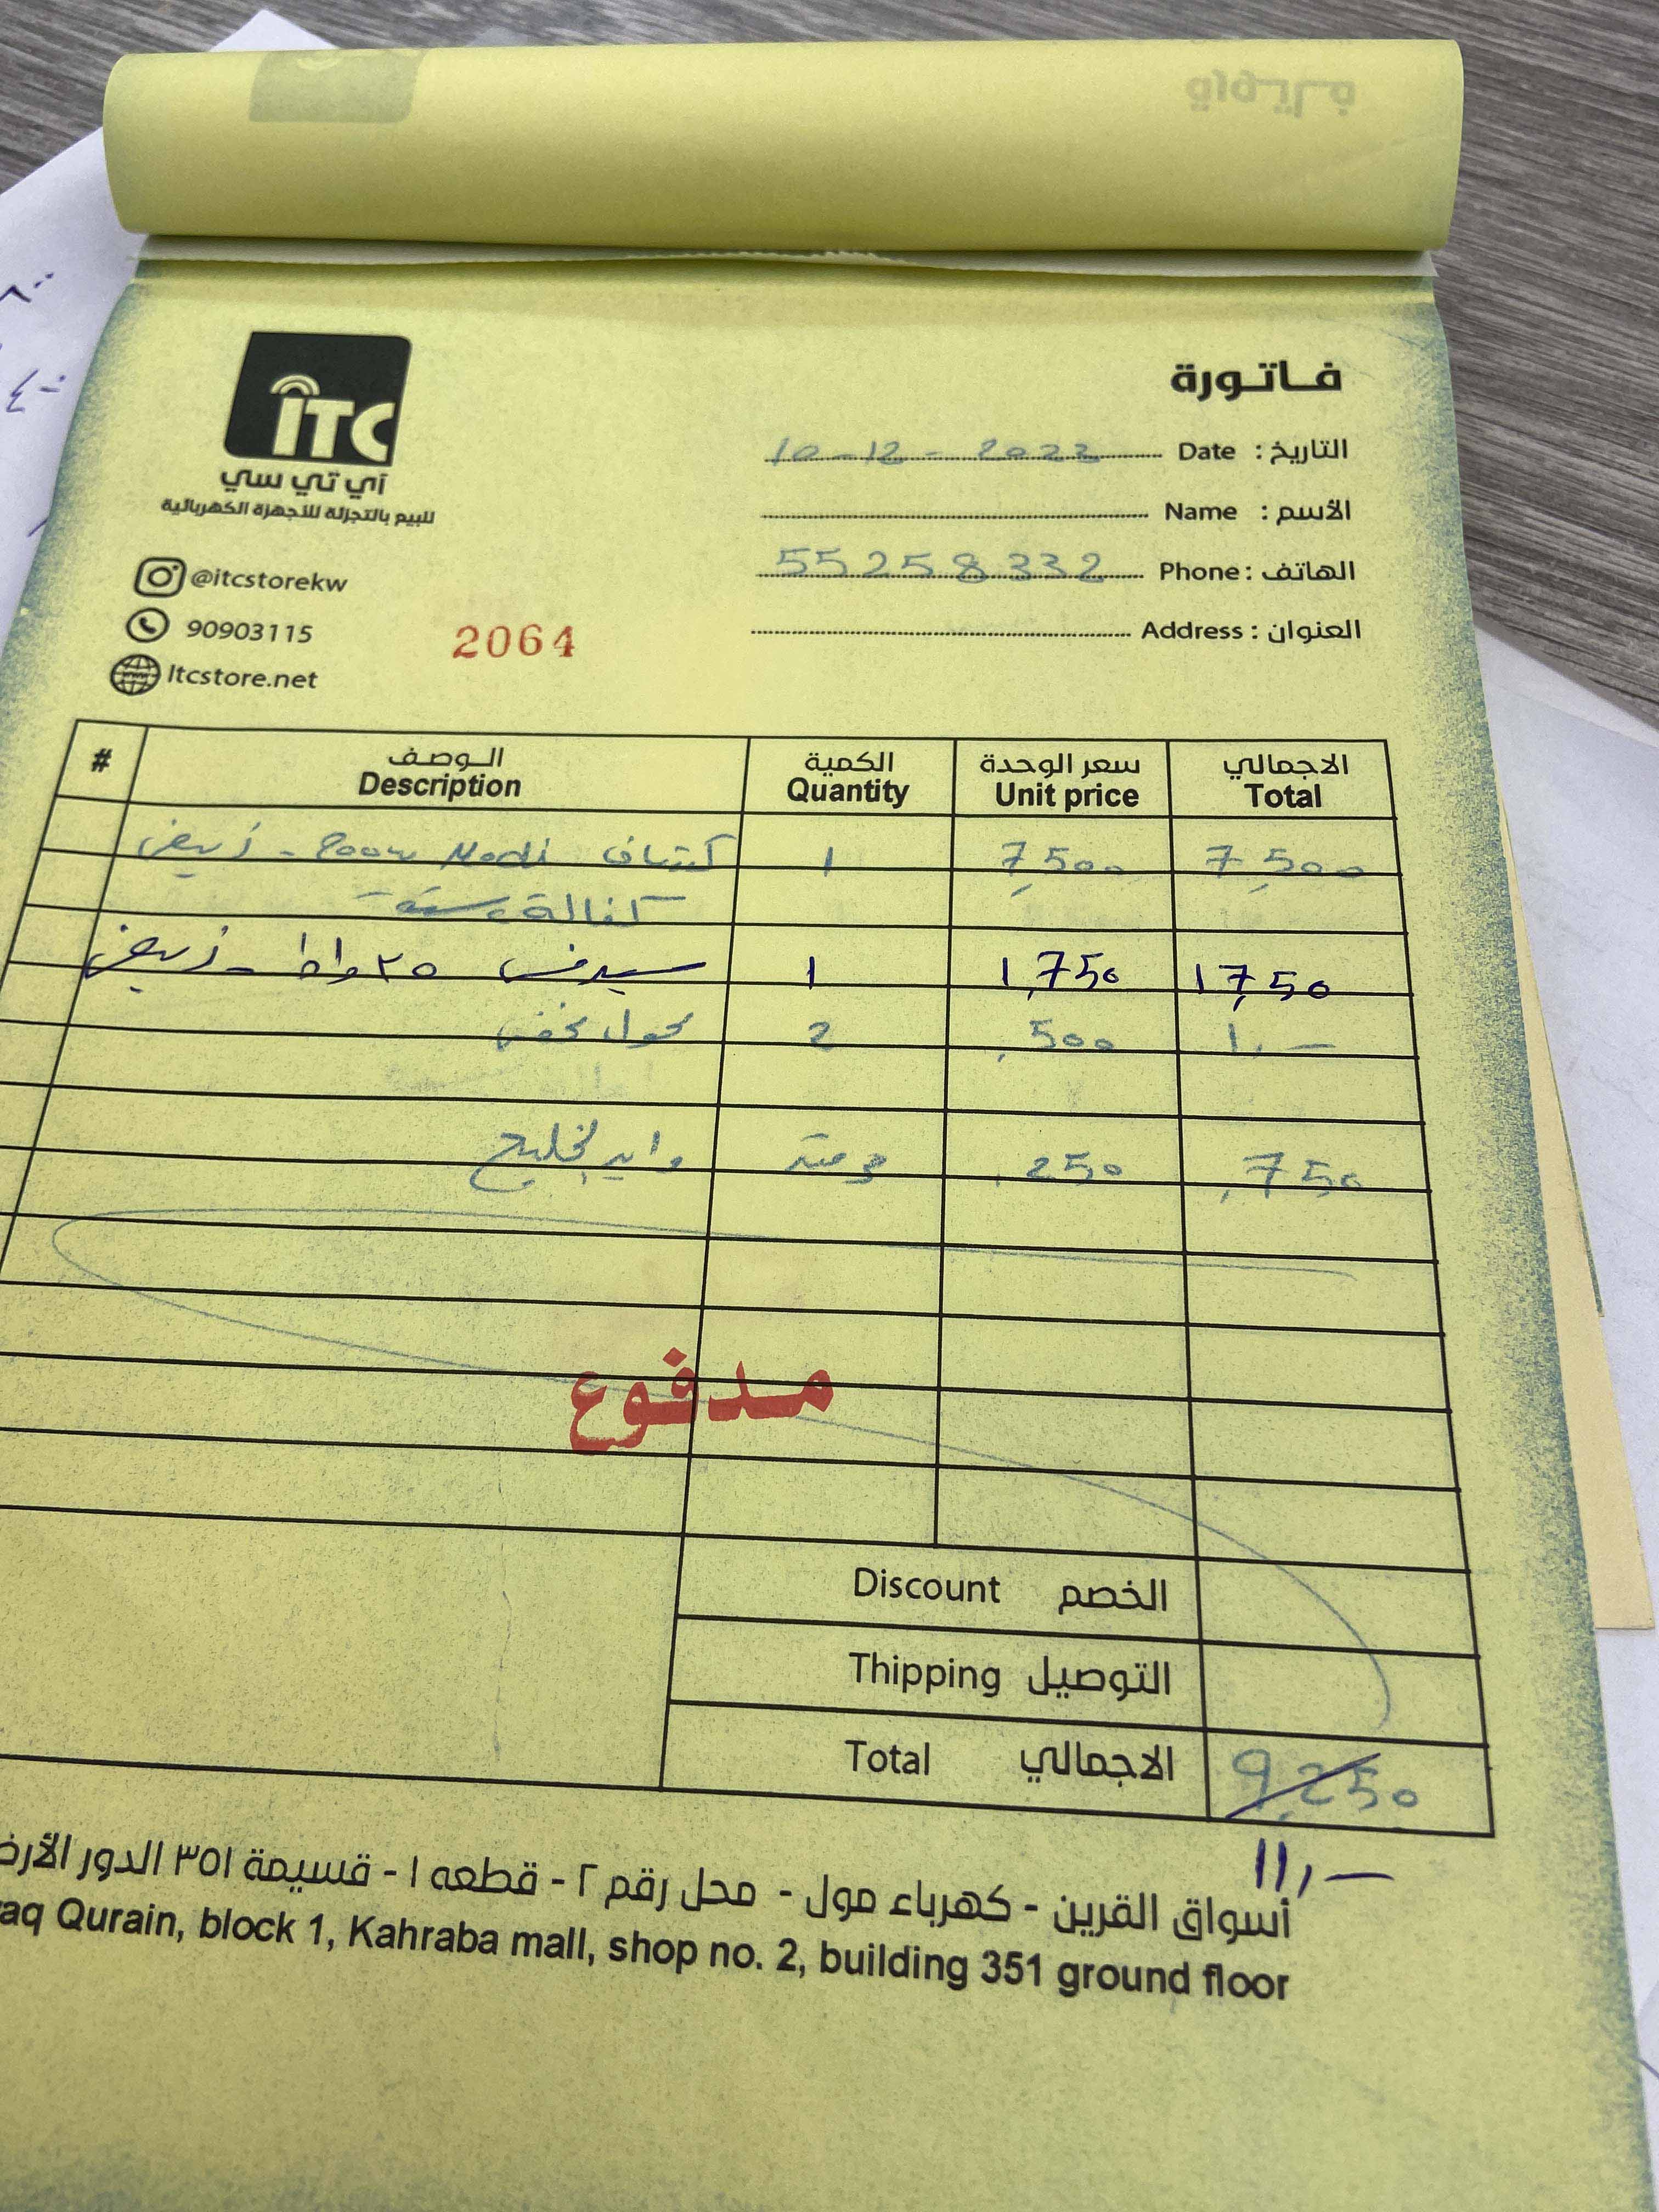 فاتورة
ITC
آي تي سي
للبيع بالتجزئة للأجهزة الكهربائية
@itcstorekw
90903115
Itcstore.net
2064
التاريخ : Date 10-12-2022
الأسم : Name
الهاتف : Phone 55258332
العنوان : Address
# الوصف الكمية سعر الوحدة الاجمالي
Description Quantity Unit price Total
كشاف 200w Modi - ابيض 1 7,500 7,500
كفالة سنة
٢٥ واط - ابيض 1 1,750 1,750
2 ,500 1,-
واير الخليج 3 متر ,250 ,750
مدفوع
Discount الخصم
Thipping التوصيل
Total الاجمالي 9,250
11,-
أسواق القرين - كهرباء مول - محل رقم ٢ - قطعه ١ - قسيمة ٣٥١ الدور
Qurain, block 1, Kahraba mall, shop no. 2, building 351 ground floor